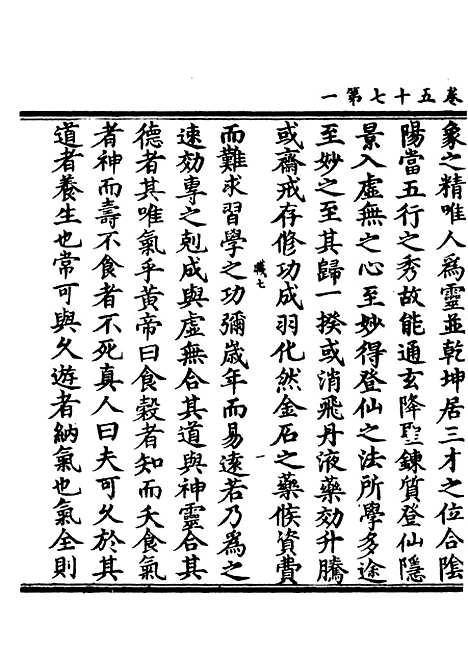 卷五十七第一
象之精唯人爲靈並乾坤居三才之位合陰
陽當五行之秀故能通玄降聖鍊質登仙隱
景入虛無之心至妙得登仙之法所學多途
至妙之至其歸一揆或消飛丹液藥効升騰
或齋戒存修功成羽化然金石之藥候資費
而難求習學之功彌歲年而易遠若乃爲之
速効專之剋成與虛無合其道與神靈合其
德者其唯氣乎黃帝曰食穀者知而夭食氣
者神而壽不食者不死真人曰夫可久於其
道者養生也常可與久遊者納氣也氣全則
職七
一